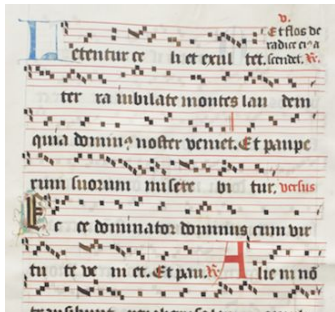 v.
Et flos de
radice eiꝰ a
scendet. R.
Letentur ce li et exul tet.
ter ra iubilate montes lau dem
quia dominꝰ noster veniet. Et paupe
rum suorum misere bi tur. versus
Ec ce dominator dominus cum vir
tu te ve ni et. Et pau. R. A lieni nō
transibunt